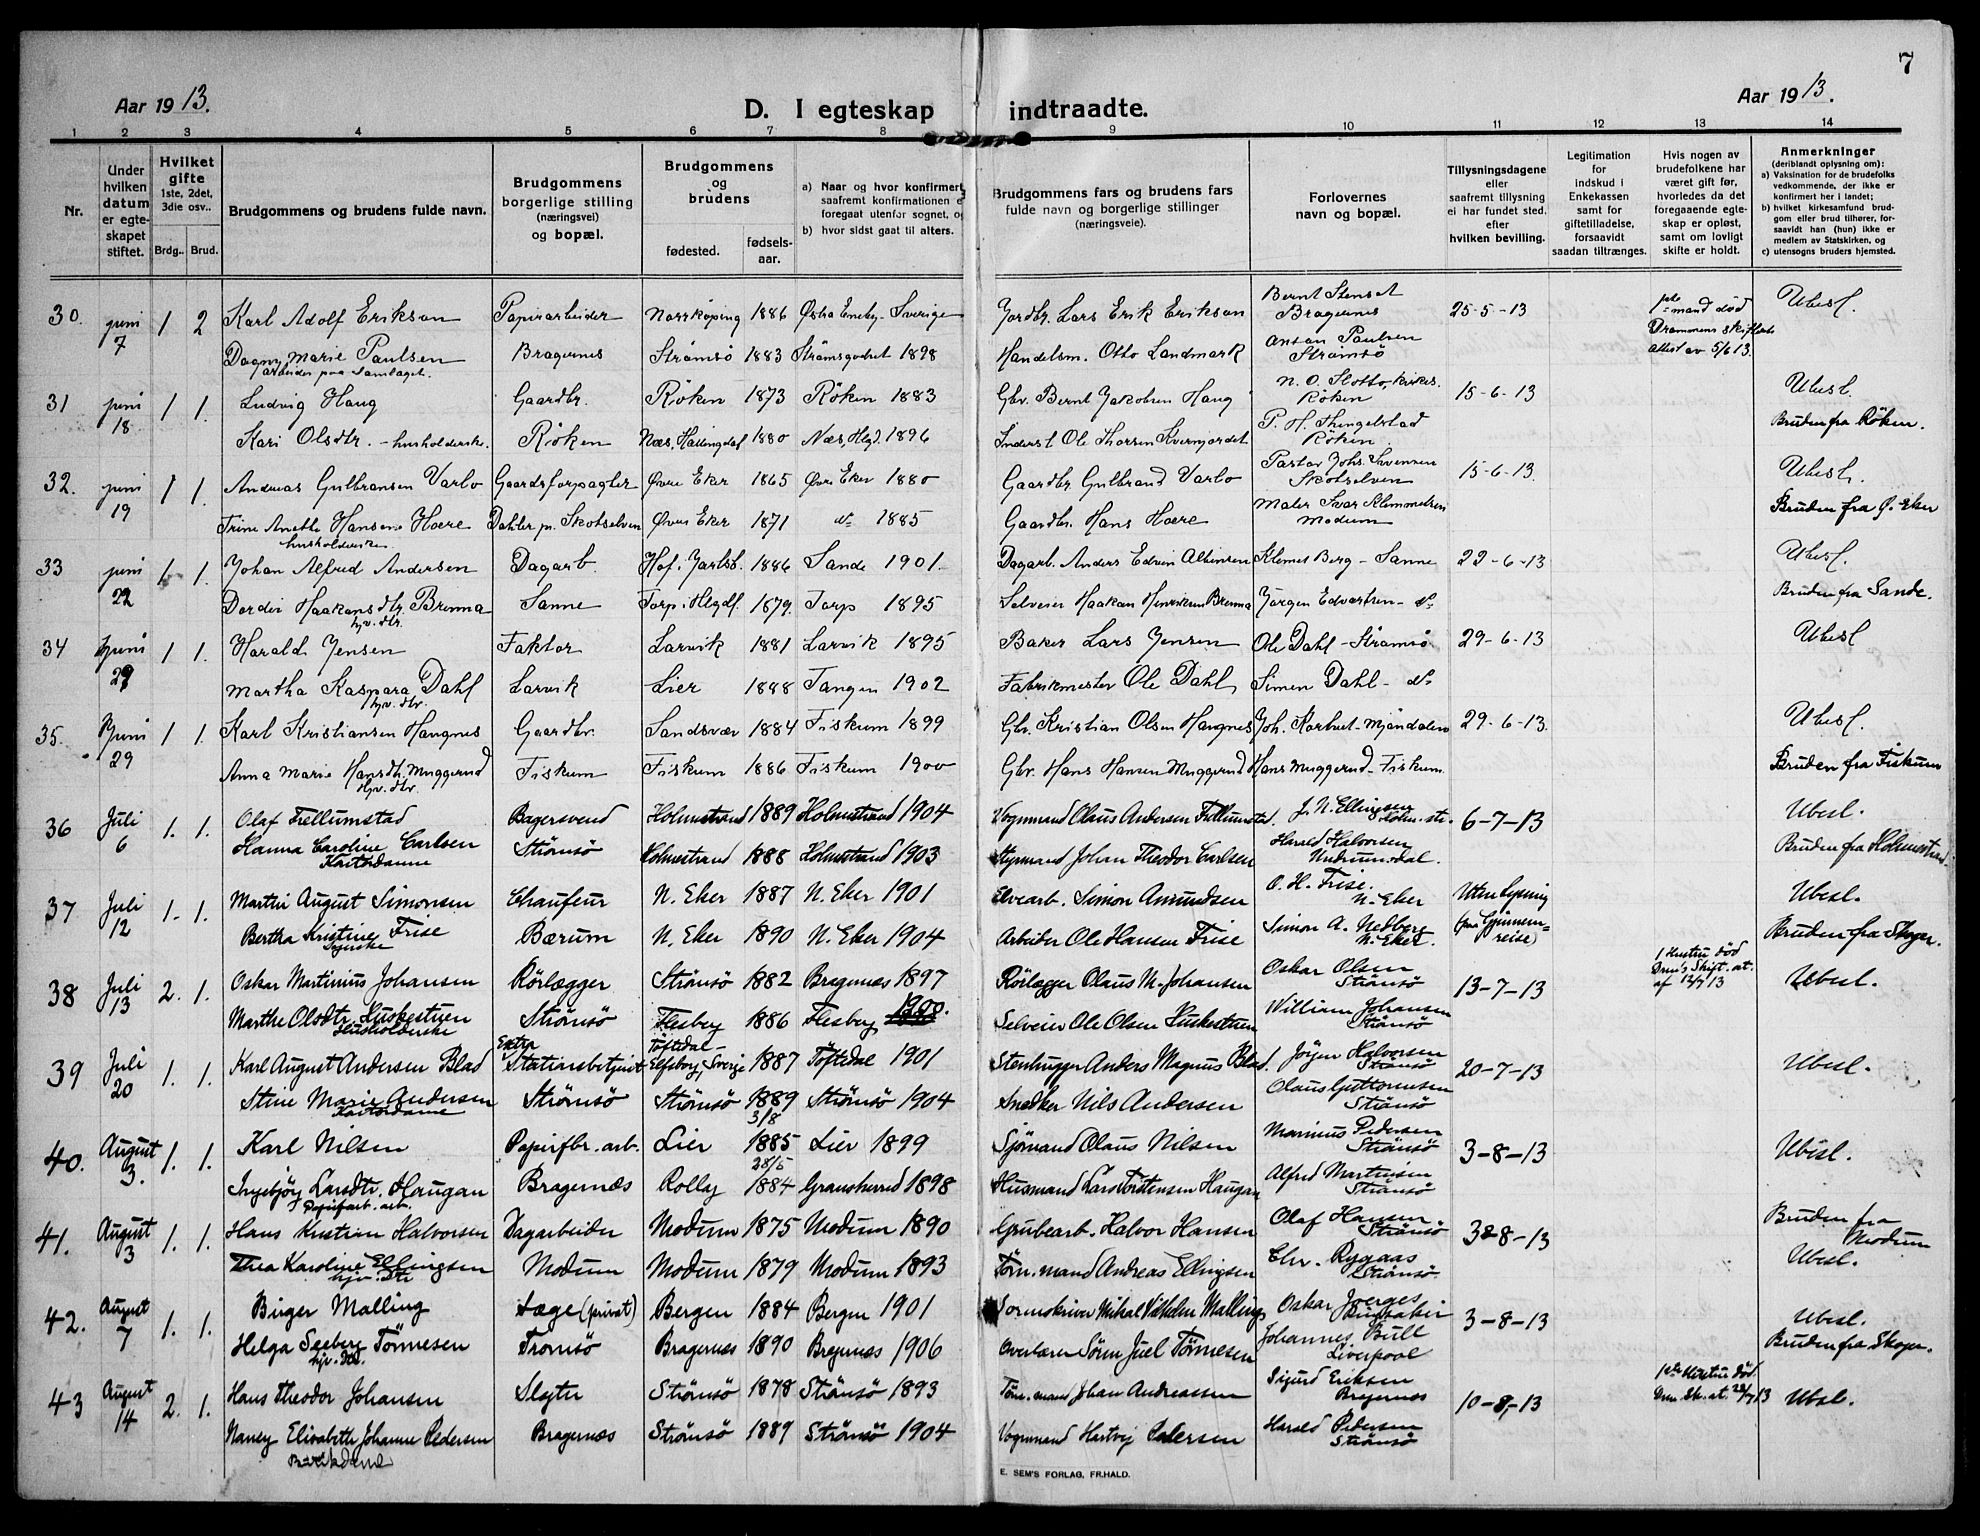 7
Aar 1913.
D. I egteskap indtraadte.
Aar 1913.
1 2 3 4 5 6 7 8 9 10 11 12 13 14
Nr.
Under hvilken datum er egteskapet stiftet.
Hvilket gifte 1ste, 2det, 3die osv..
Brdg.. Brud.
Brudgommens og brudens fulde navn.
Brudgommens borgerlige stilling (næringsvei) og bopæl.
Brudgommens og brudens
fødested. fødselsaar.
a) Naar og hvor konfirmert, saafremt konfirmationen er foregaat utenfor sognet, og
b) hvor sidst gaat til alters.
Brudgommens fars og brudens fars fulde navn og borgerlige stillinger (næringsveie).
Forlovernes navn og bopæl.
Tillysningsdagene eller saafremt tillysning ei har fundet sted. efter hvilken bevilling.
Legitimation for indskud i Enkekassen samt for giftetilladelse, forsaavidt saadan tiltrænges.
Hvis nogen av brudefolkene har været gift før, hvorledes da det foregaaende egteskap er opløst, samt om lovligt skifte er holdt.
Anmerkninger (deriblandt oplysning om):
a) Vaksination for de brudefolks vedkommende, der ikke er konfirmert her i landet;
b) hvilket kirkesamfund brudgom eller brud tilhører, forsaavidt han (hun) ikke er medlem av Statskirken, og
c) utensogns bruders hjemsted.
30. juni 7 1 2 Karl Adolf Erikson Papirarbeider Norrköping 1886 Østra Eneby - Sverige Jordbr. Lars Erik Erikson Bernt Stenset Bragernes 25-5-13 1ste mand död Drammens skifterets attest av 5/6 13. Ubesl.
Dagny Marie Paulsen Bragernes Strømsö 1883 Strømsgodset 1898 Handelsm. Otto Landmark Anton Paulsen Strømsö
arbeider paa Samlaget.
31 juni 18 1 1. Ludvig Haug Gaardbr. Röken 1873 Röken 1883 Gbr. Bernt Jakobsen Haug N. O. Slotto, kirkes. Röken 15-6-13 Ubesl.
Kari Olsdtr. - husholderske. Röken Næs, Hallingdal 1880 Næs, Hlgd. 1896 Inderst Ole Thorsen Kvernjordet P. H. Thingelstad Röken Bruden fra Röken.
32. juni 19 1 1. Andreas Gulbransen Varlo Gaardsforpagter Øvre Eker 1865 Øvre Eker 1880 Gaardbr. Gulbrand Varlo Pastor Johs. Svensen Skotselven 15-6-13. Ubesl.
Trine Anette Hansen Hoere Dahler p. Skotselven Øvre Eker 1871 do 1885 Gaardbr. Hans Hoere Maler Ivar Klemmetsen Modum Bruden fra Ø. Eker
husholderske
33 juni 22 1 1. Johan Alfred Andersen Dagarb. Hof i Jarlsb. 1886 Sande 1901. Dagarb. Anders Edvin Albinsen Klemet Berg - Sanne 22-6-13 Ubesl.
Dordei Haakonsdtr. Brenna Sanne Torp i Hlgdl. 1879. Torp 1895 Selveier Haakon Henriksen Brenna Jørgen Edvartsen - do Bruden fra Sande.
hjv. dtr.
34 juni 29 1 1. Harald Jensen Faktor Larvik 1881 Larvik 1895 Baker Lars Jensen Ole Dahl - Strømsö 29-6-13 Ubesl
Martha Kaspara Dahl Larvik Lier 1888 Tangen 1902 Fabrikmester Ole Dahl, Simen Dahl - do
hjv. dtr.
35. juni 29 1 1. Karl Kristiansen Haugnes Gaardbr. Sandsvær 1884 Fiskum 1899 Gbr. Kristian Olsen Haugnes Joh. Korbut - Mjöndalen 29-6-13. Ubesl.
Anna Marie Hansdtr. Muggerud Fiskum Fiskum 1886 Fiskum 1900 Gbr. Hans Hansen Muggerud Hans Muggerud - Fiskum Bruden fra Fiskum
Hjv. dtr.
36 Juli 6 1. 1. Olaf Fjellumstad Bagersvend Holmestrand 1889 Holmestrand 1904 Vognmand Olaus Andersen Fjellumstad. J. N. Ellingsen Holm. str. 6-7-13 Ubesl.
Hanna Caroline Carlsen Strömsö Holmestrand 1888 Holmestrand 1903 Styrmand Johan Theodor Carlsen Harald Halvorsen Undrumsdal. Bruden fra Holmestrand
Kontordame
37 Juli 12 1. 1. Martin August Simonsen Chaufeur N. Eker 1887 N. Eker 1901 Elvearb. Simon Amundsen O. H. Frise. N. Eker Uten lysning Ubesl.
Bertha Kristine Frise Bærum N. Eker 1890 N. Eker 1904 Arbeider Ole Hansen Frise Simon A. Nedberg N. Eker. (paa Gjennemreise) Bruden fra Skoger.
38 Juli 13 2. 1. Oskar Martinius Johansen Rörlægger Strömsö 1882 Bragernæs 1897 Rörlægger Olaus M. Johansen Oskar Olsen Strömsö 13-7-13 1 Hustru död Drm's Skift. at. af 12/7 13 Ubesl.
Marthe Olsdtr. Huskestuen Strömsö Flesberg 1886 Flesberg 1900. Selveier Ole Olsen Huskestuen William Johansen Strömsö
Husholderske
39 Juli 20 1. 1. Karl August Andersen Blad Extra Stationsbetjent Töftedal - Elfsborg, Sverje 1887 Töftedal 1901 Stenhugger Anders Magnus Blad. Jörgen Halvorsen Strömsö 20-7-13 Ubesl.
Stine Marie Andersen Strömsö Strömsö 1889 Strömsö 1904 Snedker Nils Andersen Olaus Guttormsen Strömsö
Kontordame
40. August 3. 1. 1. Karl Nilsen Papirfbr. arb. Lier 3/8 1885 Lier 1899 Sjömand Olaus Nilsen Marinus Pedersen Strömsö 3-8-13 Ubesl.
Ingebjörg Larsdtr. Haugan Bragernæs Rollag 28/5 1884 Gransherred 1898 Husmand Lars Torstensen Haugan Alfred Martinsen Strömsö
Papirfarb. arb.
41. August 3 1. 1. Hans Kristian Halvorsen Dagarbeider Modum 1875 Modum 1890 Grubearb. Halvor Hansen Olaf Hansen Strömsö 3-8-13 Bruden fra Modum
Thea Karoline Ellingsen Modum Modum 1879 Modum 1893 Töm. mand Andreas Ellingsen Chr. Ryggaas Strömsö. Ubesl.
hjv. Dtr
42. August 7 1. 1. Birger Malling Læge (privat) Bergen 1884 Bergen 1901 Sorenskriver Mikal Vilhelm Malling Oskar Joerges 3-8-13 Ubesl.
Helga Seeberg Tönnesen Tromsö Bragernæs 1890 Bragernæs 1906 Overlærer Sören Juel Tönnesen Johannes Bull Liverpool Bruden fra Skoger.
hjv. Dtr.
43 August 14 2. 1. Hans Theodor Johansen Slagter Strömsö 1878 Strömsö 1893 Töm. mand Johan Andreassen Sigurd Eriksen Bragernes 10-8-13 1ste Hustru död. Drm. Sk. at. Ubesl.
Nancy Elisabeth Johanne Pedersen Bragernæs Strömsö 1889 Strömsö 1904 Vognmand Hartvig Pedersen Harald Pedersen Strömsö
Butikdame
E. SEM'S FORLAG, FR.HALD.